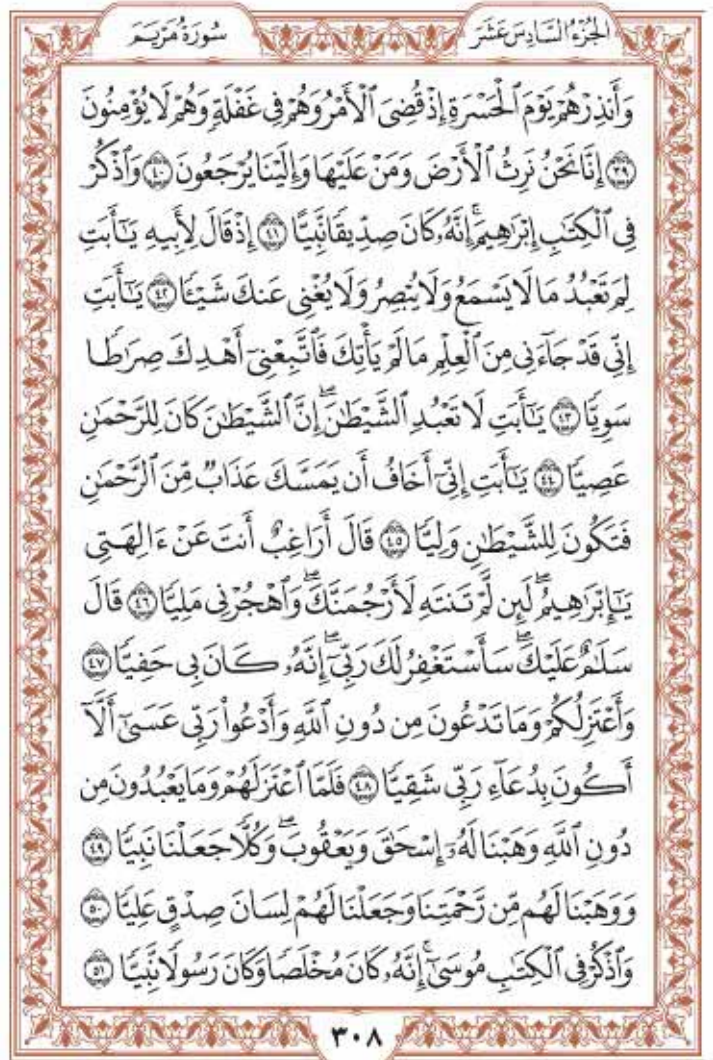 الجزء السادس عشر
سورة مريم
وَأَنذِرْهُمْ يَوْمَ ٱلْحَسْرَةِ إِذْ قُضِيَ ٱلْأَمْرُ وَهُمْ فِي غَفْلَةٍ وَهُمْ لَا يُؤْمِنُونَ
٣٩ إِنَّا نَحْنُ نَرِثُ ٱلْأَرْضَ وَمَنْ عَلَيْهَا وَإِلَيْنَا يُرْجَعُونَ ٤٠ وَٱذْكُرْ
فِي ٱلْكِتَٰبِ إِبْرَٰهِيمَ ۚ إِنَّهُۥ كَانَ صِدِّيقًا نَّبِيًّا ٤١ إِذْ قَالَ لِأَبِيهِ يَٰٓأَبَتِ
لِمَ تَعْبُدُ مَا لَا يَسْمَعُ وَلَا يُبْصِرُ وَلَا يُغْنِي عَنكَ شَيْـًٔا ٤٢ يَٰٓأَبَتِ
إِنِّي قَدْ جَآءَنِي مِنَ ٱلْعِلْمِ مَا لَمْ يَأْتِكَ فَٱتَّبِعْنِيٓ أَهْدِكَ صِرَٰطًا
سَوِيًّا ٤٣ يَٰٓأَبَتِ لَا تَعْبُدِ ٱلشَّيْطَٰنَ ۖ إِنَّ ٱلشَّيْطَٰنَ كَانَ لِلرَّحْمَٰنِ
عَصِيًّا ٤٤ يَٰٓأَبَتِ إِنِّيٓ أَخَافُ أَن يَمَسَّكَ عَذَابٌ مِّنَ ٱلرَّحْمَٰنِ
فَتَكُونَ لِلشَّيْطَٰنِ وَلِيًّا ٤٥ قَالَ أَرَاغِبٌ أَنتَ عَنْ ءَالِهَتِي
يَٰٓإِبْرَٰهِيمُ ۖ لَئِن لَّمْ تَنتَهِ لَأَرْجُمَنَّكَ ۖ وَٱهْجُرْنِي مَلِيًّا ٤٦ قَالَ
سَلَٰمٌ عَلَيْكَ ۖ سَأَسْتَغْفِرُ لَكَ رَبِّيٓ ۖ إِنَّهُۥ كَانَ بِي حَفِيًّا ٤٧
وَأَعْتَزِلُكُمْ وَمَا تَدْعُونَ مِن دُونِ ٱللَّهِ وَأَدْعُوا۟ رَبِّي عَسَىٰٓ أَلَّآ
أَكُونَ بِدُعَآءِ رَبِّي شَقِيًّا ٤٨ فَلَمَّا ٱعْتَزَلَهُمْ وَمَا يَعْبُدُونَ مِن
دُونِ ٱللَّهِ وَهَبْنَا لَهُۥٓ إِسْحَٰقَ وَيَعْقُوبَ ۖ وَكُلًّا جَعَلْنَا نَبِيًّا ٤٩
وَوَهَبْنَا لَهُم مِّن رَّحْمَتِنَا وَجَعَلْنَا لَهُمْ لِسَانَ صِدْقٍ عَلِيًّا ٥٠
وَٱذْكُرْ فِي ٱلْكِتَٰبِ مُوسَىٰٓ ۚ إِنَّهُۥ كَانَ مُخْلَصًا وَكَانَ رَسُولًا نَّبِيًّا ٥١
٣٠٨